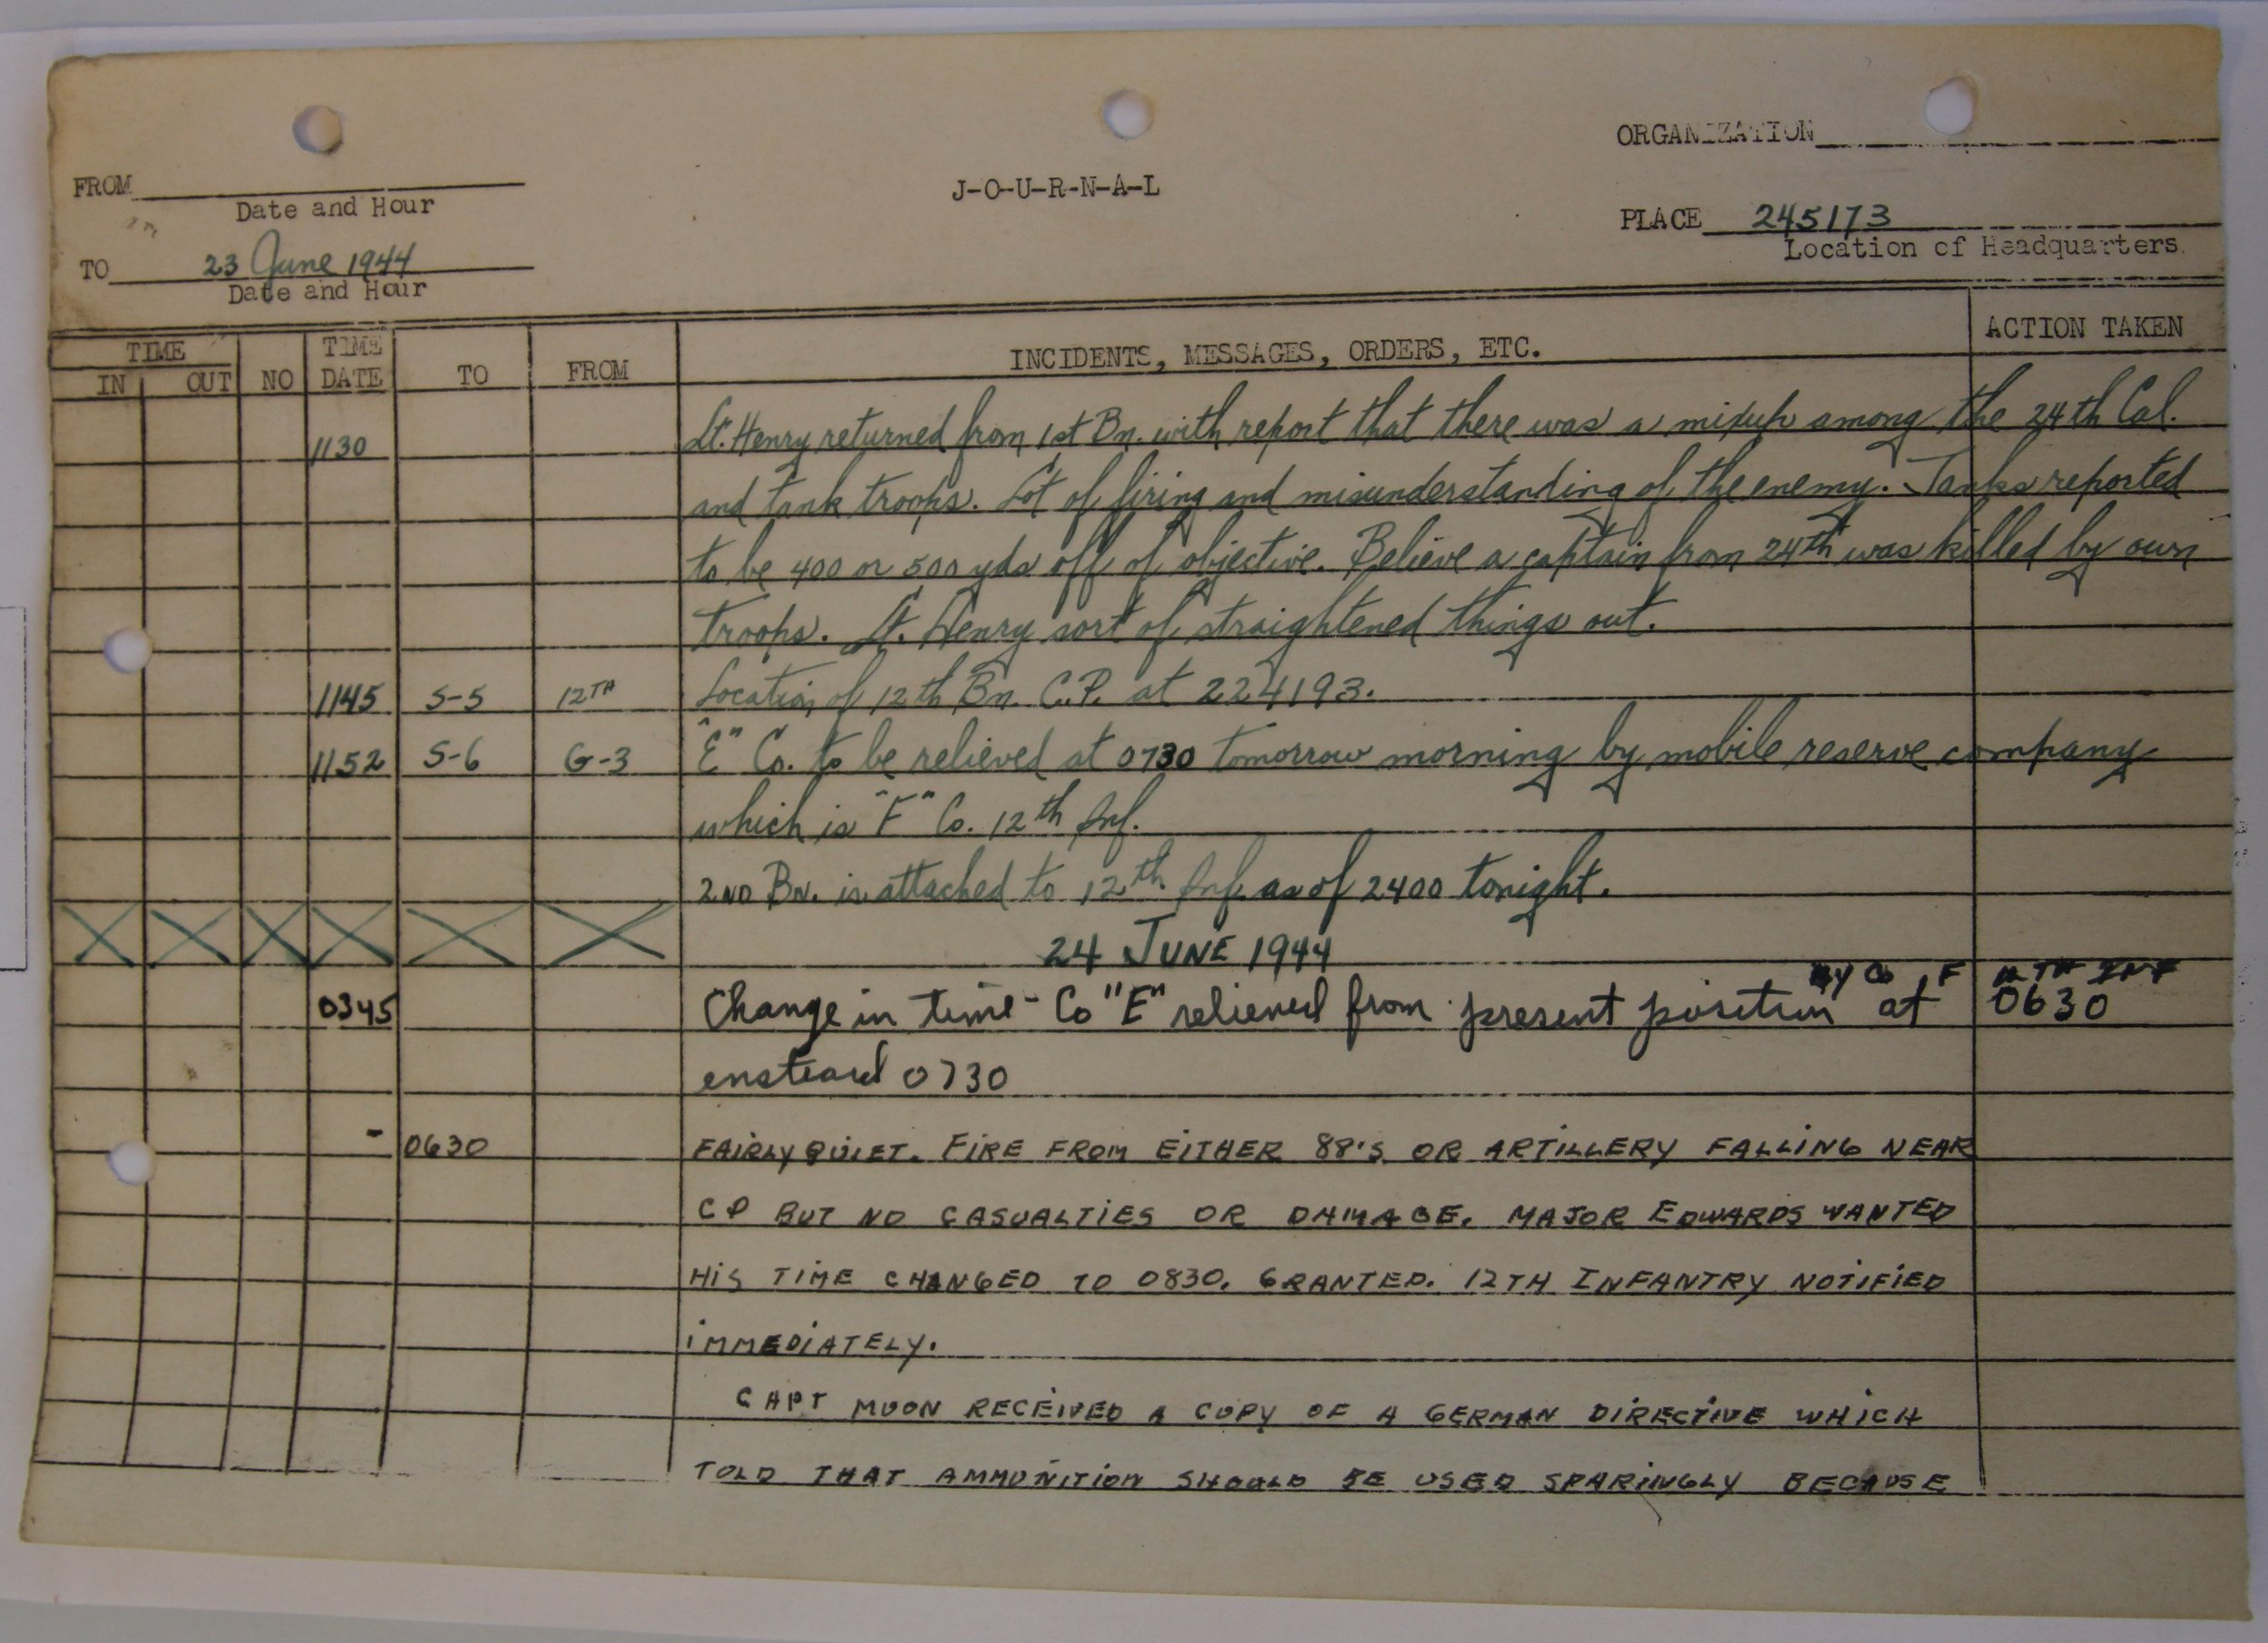 ORGANIZATION
FROM
J-O-U-R-N-A-L
Date and Hour
PLACE 245173
Location of Headquarters
TO 23 June 1944
Date and Hour
TIME TIME
IN OUT NO DATE TO FROM INCIDENTS, MESSAGES, ORDERS, ETC. ACTION TAKEN
1130 Lt. Henry returned from 1st Bn. with report that there was a mixup among the 24th Cal.
and tank troops. Lot of firing and misunderstanding of the enemy. Tanks reported
to be 400 or 500 yds off of objective. Believe a captain from 24th was killed by own
troops. Lt. Henry sort of straightened things out.
1145 S-5 12TH Location of 12th Bn. C.P. at 224193.
1152 S-6 G-3 "E" Co. to be relieved at 0730 tomorrow morning by mobile reserve company
which is "F" Co. 12th Inf.
2ND Bn. is attached to 12th Inf. as of 2400 tonight.
24 JUNE 1944
By Co F 12TH INF
0345 Change in time - Co "E" relieved from present position at 0630
enstead 0730
- 0630 FAIRLY QUIET. FIRE FROM EITHER 88'S OR ARTILLERY FALLING NEAR
CP BUT NO CASUALTIES OR DAMAGE. MAJOR EDWARDS WANTED
HIS TIME CHANGED TO 0830. GRANTED. 12TH INFANTRY NOTIFIED
IMMEDIATELY.
CAPT MOON RECEIVED A COPY OF A GERMAN DIRECTIVE WHICH
TOLD THAT AMMUNITION SHOULD BE USED SPARINGLY BECAUSE